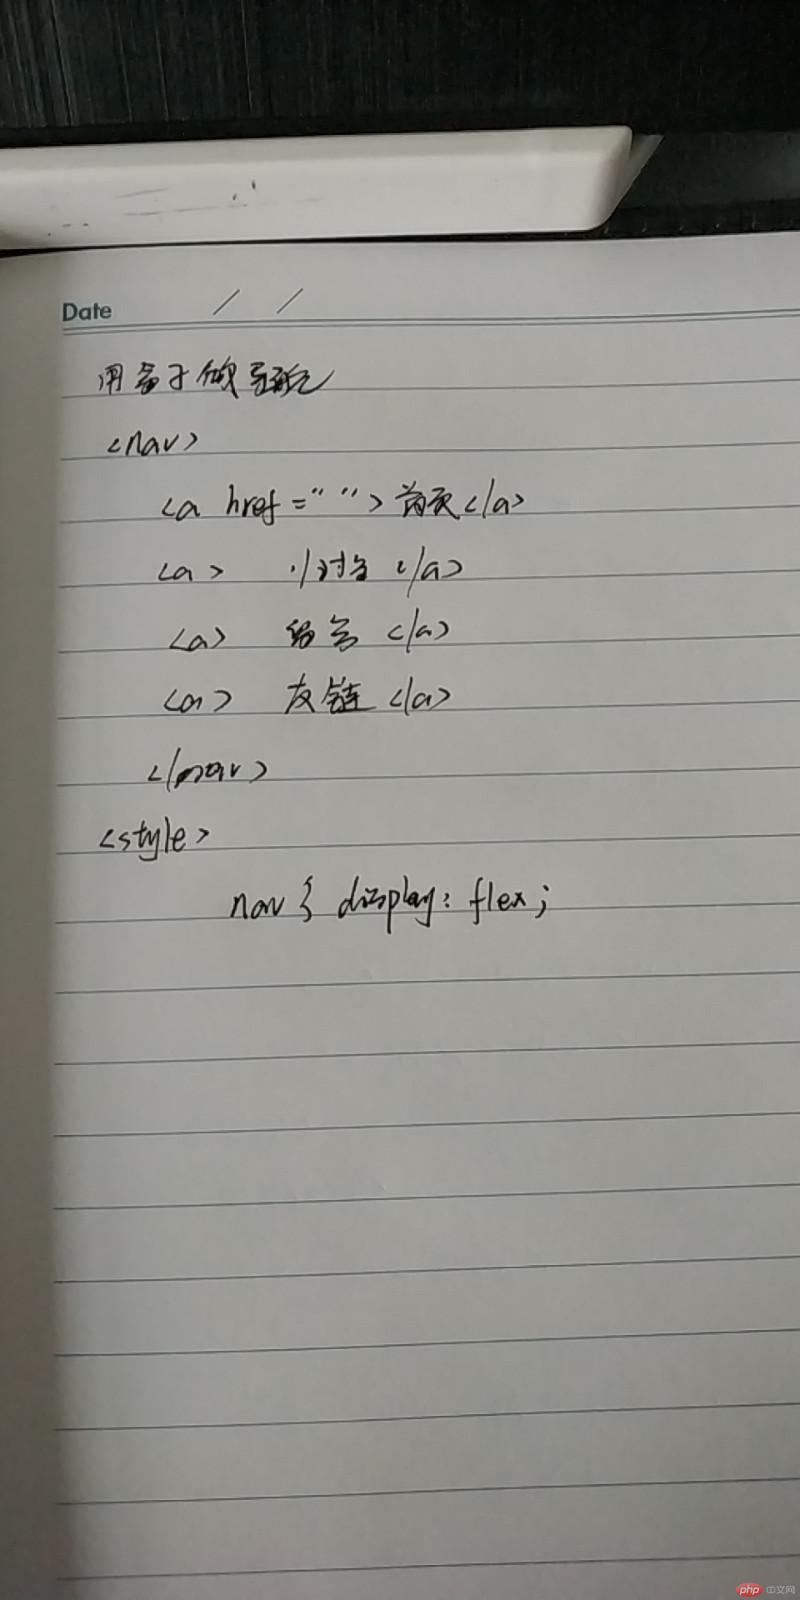 Date / /
用盒子做导航
<nav>
<a href="">首页</a>
<a> </a>
<a> </a>
<a> 友链 </a>
</nav>
<style>
nav { display: flex;
php 中文网